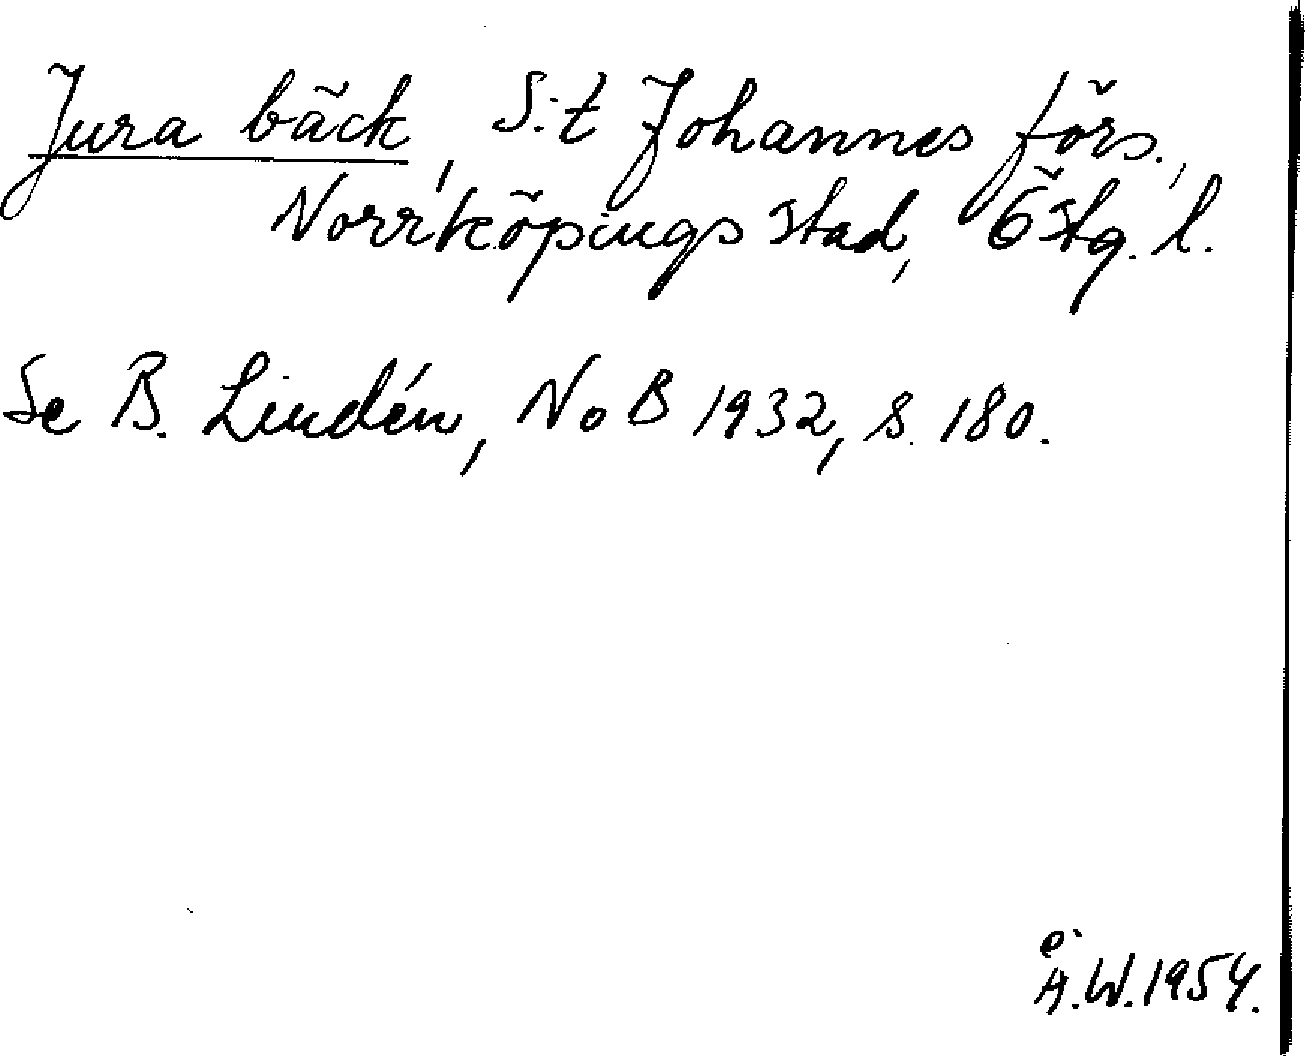 Jura bäck, S:t Johannes förs.,
Norrköpings stad, Östg. l.
Se B. Lindén, NoB 1932, s. 180.
Å.W.1954.